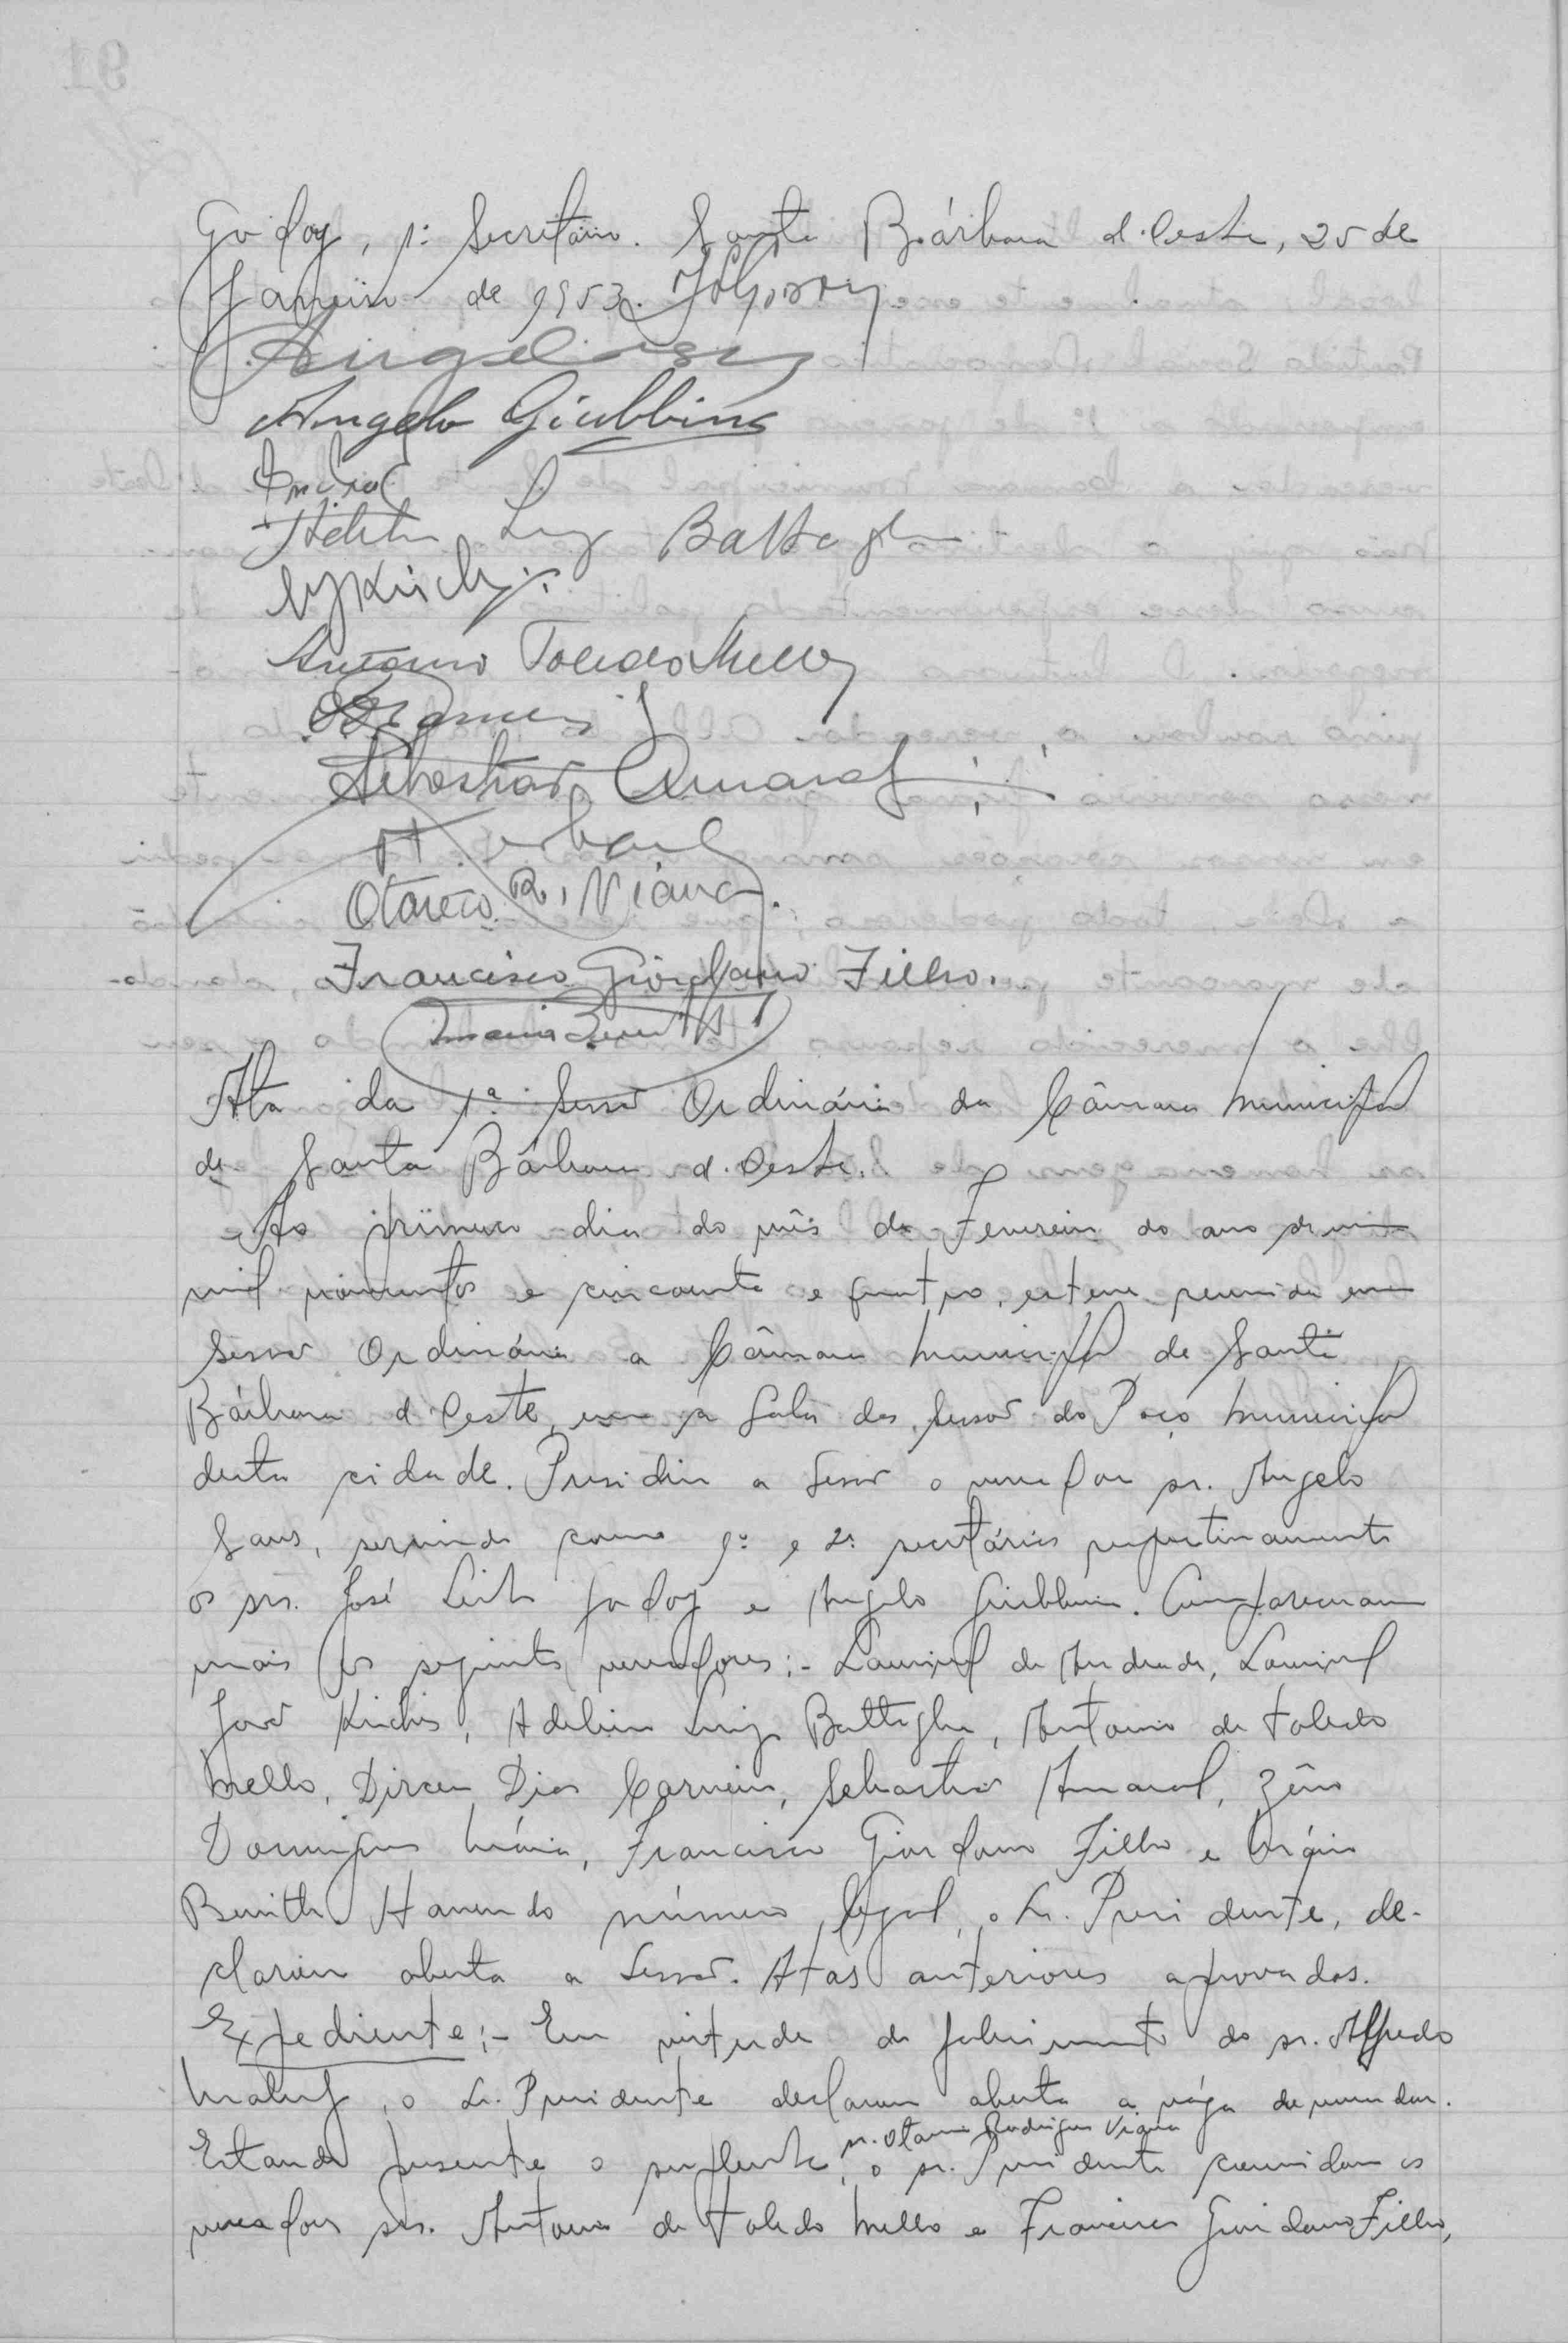 Godoy, 1º Secretário. Santa Bárbara d'Oeste, 25 de
Janeiro de 1953. JLGodoy
Angelo Sans
Angelo Giubbina
Luiz Battaglia
Antonio Toledo Mello
Sebastião Amaral
Otavio R. Viana.
Francisco Giordano Filho.
Ata da 1ª Sessão Ordinária da Câmara Municipal
de Santa Bárbara d'Oeste.
Ao primeiro dia do mês de Fevereiro do ano de mil
mil novecentos e cincoenta e quatro, esteve reunida em
Sessão Ordinária a Câmara Municipal de Santa
Bárbara d'Oeste, em a Sala das Sessões do Paço Municipal
desta cidade. Presidiu a Sessão o vereador sr. Angelo
Sans, servindo como 1º e 2º secretários respectivamente
os srs. José Leite Godoy e Angelo Giubbina. Compareceram
mais os seguintes vereadores:- Laurival de Andrade, Laurival
José Kirchis, Adelino Luiz Battaglia, Antonio de Toledo
Mello, Dirceu Dias Carneiro, Sebastião Amaral, Zêno
Domingues Maia, Francisco Giordano Filho e Mário
Benith. Havendo número legal, o Sr. Presidente, de-
clarou aberta a Sessão. Atas anteriores aprovadas.
Expediente:- Em virtude do falecimento do sr. Alfredo
Maluf, o Sr. Presidente declarou aberta a vága de vereador.
sr. Otavio Rodrigues Viana
Estando presente o suplente, o sr. Presidente convidou os
vereadores srs. Antonio de Toledo Mello e Francisco Giordano Filho,